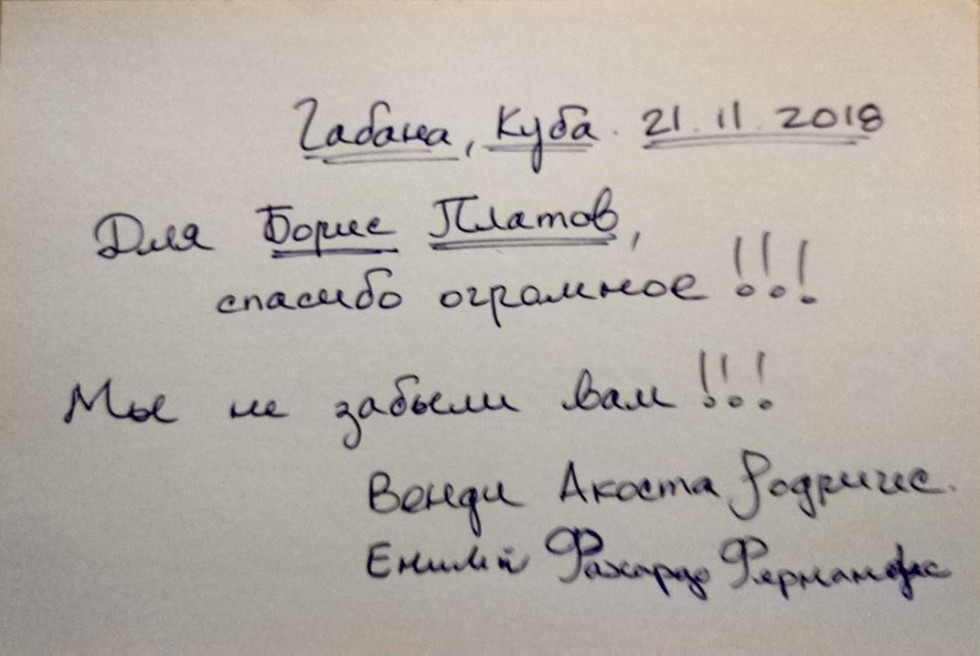 Габана, Куба. 21.11.2018
Для Борис Платов,
спасибо огромное!!!
Мы не забыли вам!!!
Венди Акоста Родригис.
Фахардо